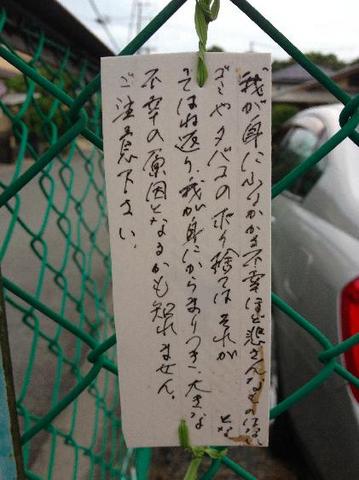 我が身にふりかかる不幸ほど悲惨なものはない
ゴミやタバコのポイ捨ては それが
はね返り、我が身にからまりつき、大きな
不幸の原因となるかも知れません。
ご注意下さい。